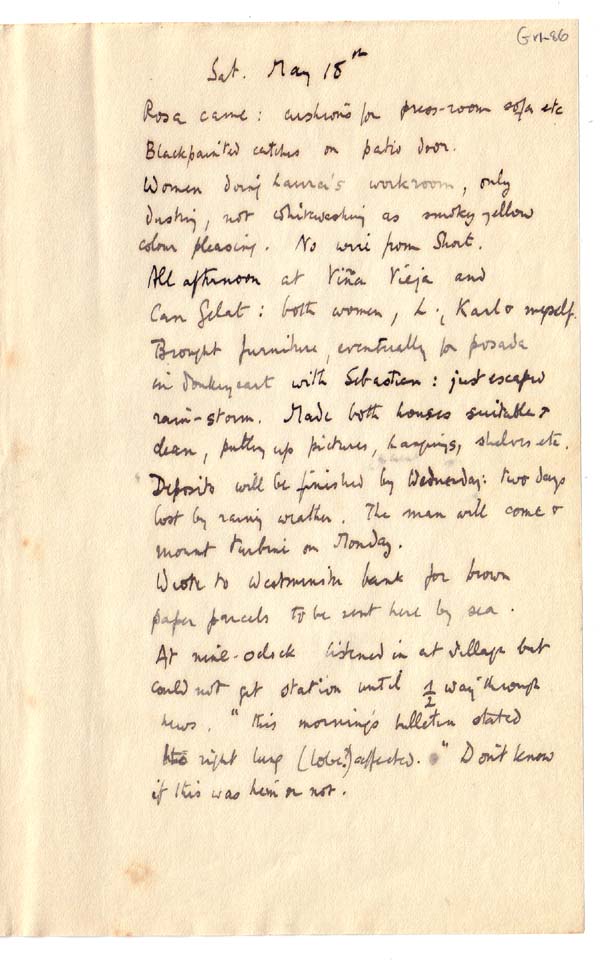 GM-86
Sat. May 18th
Rosa came: cushions for press-room sofa etc
Blackpainted catches on patio door.
Women doing Laura's workroom, only
dusting, not whitewashing as smoky yellow
colour pleasing. No wire from Short.
All afternoon at Viña Vieja and
Can Gelat: both women, L., Karl & myself.
Brought furniture, eventually for posada
in donkeycart with Sebastian: just escaped
rain-storm. Made both houses suitable &
clean, putting up pictures, hangings, shelves etc.
Deposito will be finished by Wednesday: two days
lost by rainy weather. The man will come &
mount turbine on Monday.
Wrote to Westminster bank for brown
paper parcels to be sent here by sea.
At nine-oclock listened in at village but
could not get station until ½ way through
news. "This morning's bulletin stated
right lung (lobe?) affected." Don't know
if this was him or not.